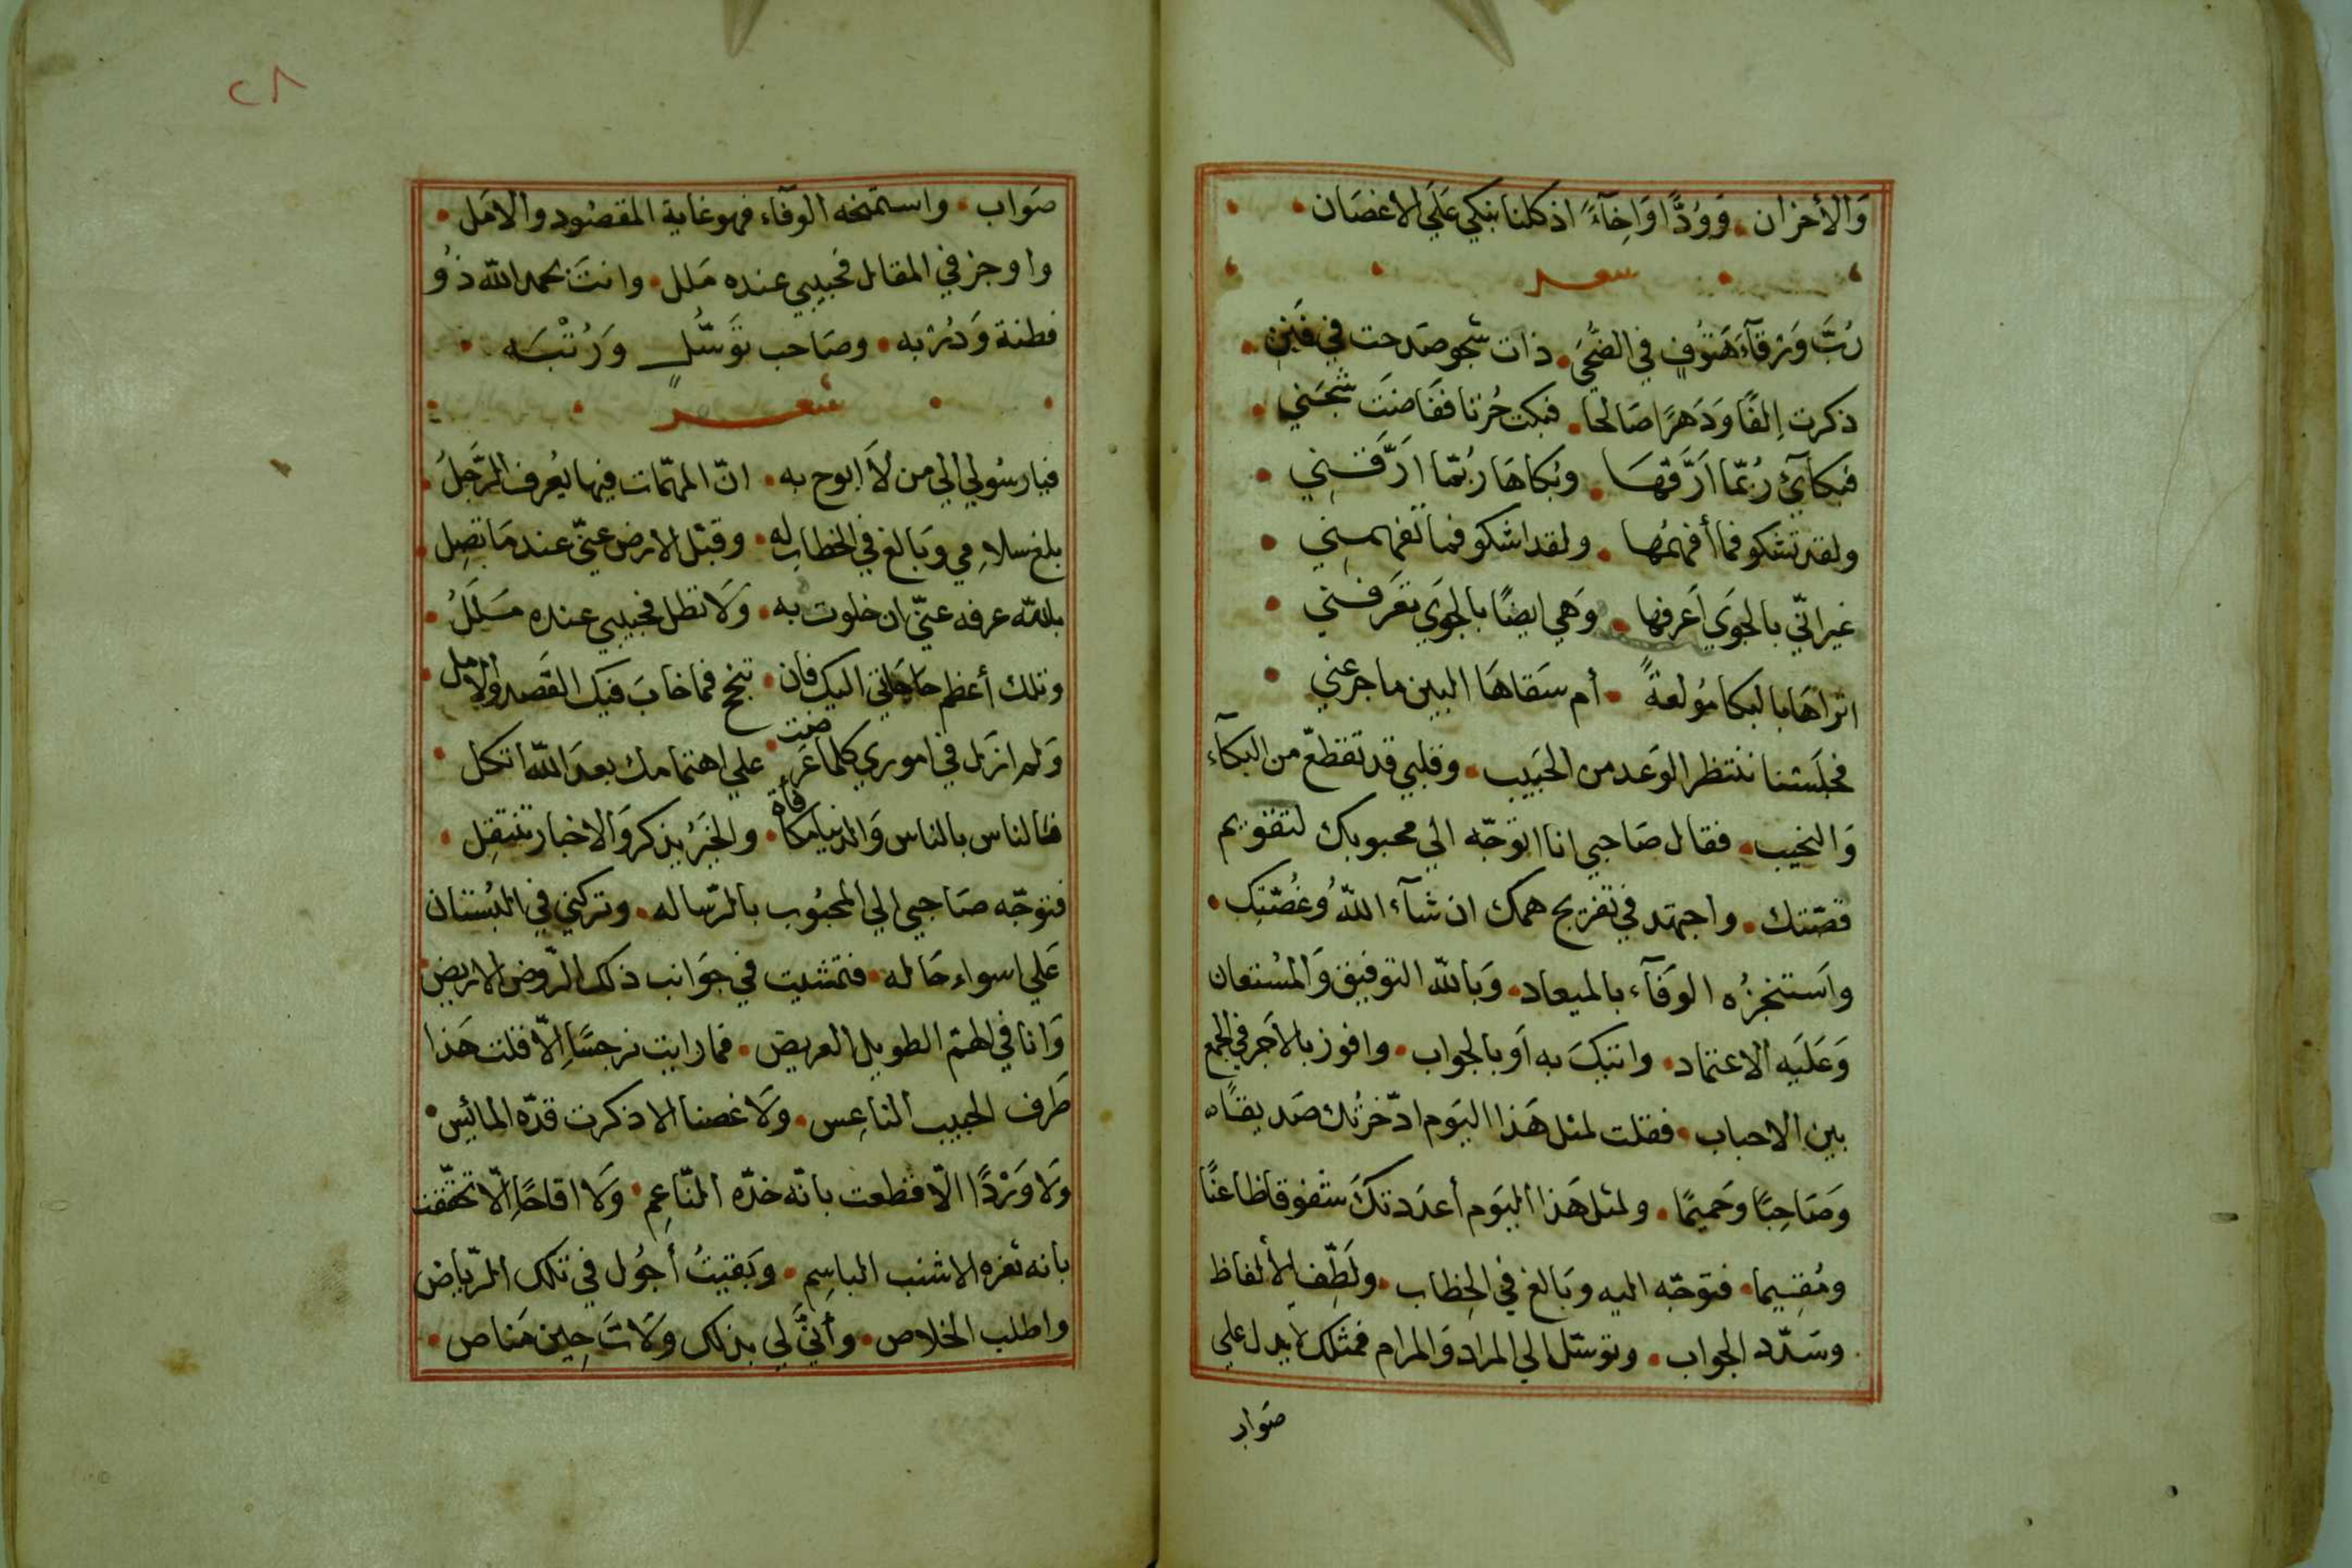 وَالأحزان . وَوُدًّا وَاِخآءً اذ كلنا نبكي عَلَي الاغصَان
شعر
رُبَّ وَرْقآءَ هَتُوفٍ في الضُّحَي . ذات شجو صَدحت في فَنَنِ
ذكرت اِلفًا وَدَهرًا صَالحا . فبكت حُزنا فَفَاضَت شَجَني
فبكآئ رُبّما اَرَّقهَا . وبُكاهَا رُبّما ارَّقَني
ولقد تشكو فما أفهمُها . ولقد اشكو فما تفهمني
غير انّي بالجوَي اَعرفها . وَهي ايضًا بالجوَي تعَرفني
اتراهَا بالبكا مُولعةً . أم سَقاهَا البين ما جرعني
فجلَسْنا ننتظر الوَعد من الحَبيب . وقلبي قد تقطعّ من البكآء
وَالنحيب . فقال صَاحبي انا اتوجّه الي محبوبك لتقويم
قصّتك . واجتهد في تفريج همك ان شآء اللهُ وغُصّتك .
واَستنجزُه الوَفآء بالميعاد . وَبالله التوفيق وَالمسُتعان
وَعَلَيه الاعتماد . واتيكَ به اَو بالجواب . وافوز بالاَجر في الجمع
بين الاحباب . فقلت لمثل هَذا اليَوم ادّخرتُك صَديقًا
وَصَاحِبًا وحَميمًا . ولمثل هَذا اليَوم أعدَدتكَ شفوقا ظاعنًا
ومُقِيما . فتوجّه اليه وبَالغ في الخطاب . ولَطِّف الألفاظ
وسَدّد الجواب . وتوسّل الي المراد وَالمرام فمثلك لا يدل علي
صَواب
٢٨
صَواب . واستمنحه الوفآء فهو غاية المقصُود والامَل .
واوجز في المقال فحبيبي عنده مَلل . وانتَ بحمد الله ذوُ
فطنة وَدُرْبه . وصَاحب تَوَسُّلٍ وَرُتْبَه .
شعر
فيا رسُولي الي من لاَ ابوح به . انّ المهمّات فيها يُعرف الرّجلُ
بلغ سلامِي وَبَالغ في الخطاب له . وقبّل الارض عنّي عند مَا تصِل
بالله عرفه عنّي ان خلوت به . وَلا تطل فحبيبي عنده مَلَلُ
وتلك أعظم حَاجَاتي اليك فان . تنجح فما خابَ فيك القَصد والامل
وَلم ازَل في اموري كلما عَرضت . علي اهتمامك بعدَ الله اتكل
فالناس بالناس وَالدنيا مكافأة . والخَيرُ يذكر وَالاخبار تنتقِل
فتوجّه صَاحبي الي المحبُوب بالرّساله . وتركني في البُستان
عَلي اسواء حَاله . فتمشيت في جوَانب ذلك الرّوض الاريض
وَانا في الهمّ الطويل العريض . فما رايت نرجسًا اِلاّ قلت هَذا
طَرف الحبيب الناعِس . وَلا غصنا الا ذكرت قدّه المائِس .
وَلا وَرْدًا الاّ قطعت بانّه خدّه النّاعِم . وَلا اقاحًا اِلاّ تحققت
بانه ثغره الاشنب الباسِم . وبَقيتُ أجُول في تلك الرّياض
واطلب الخلاص . وأنيَّ لي بذلك وَلاتَ حِين مَناص .